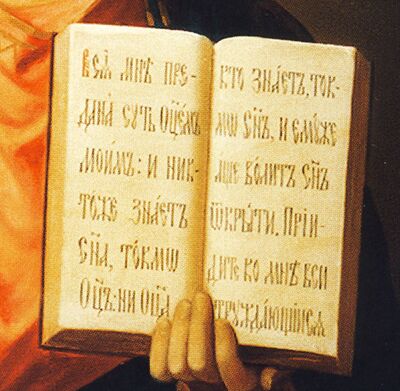 Всѧ̑ мнѣ̀ пре-
дана̀ сꙋть Оц҃емъ
моимъ: и ник-
то́же зна́етъ
Сн҃а, то́кмѡ
Оц҃ъ: ни Оц҃а
кто зна́етъ, ток-
мѡ Сн҃ъ, и емꙋ́же
а҆ще во́литъ Сн҃ъ
ѿкры́ти. Прїи-
дите ко мнѣ̀ вси
трꙋжда́ющїисѧ